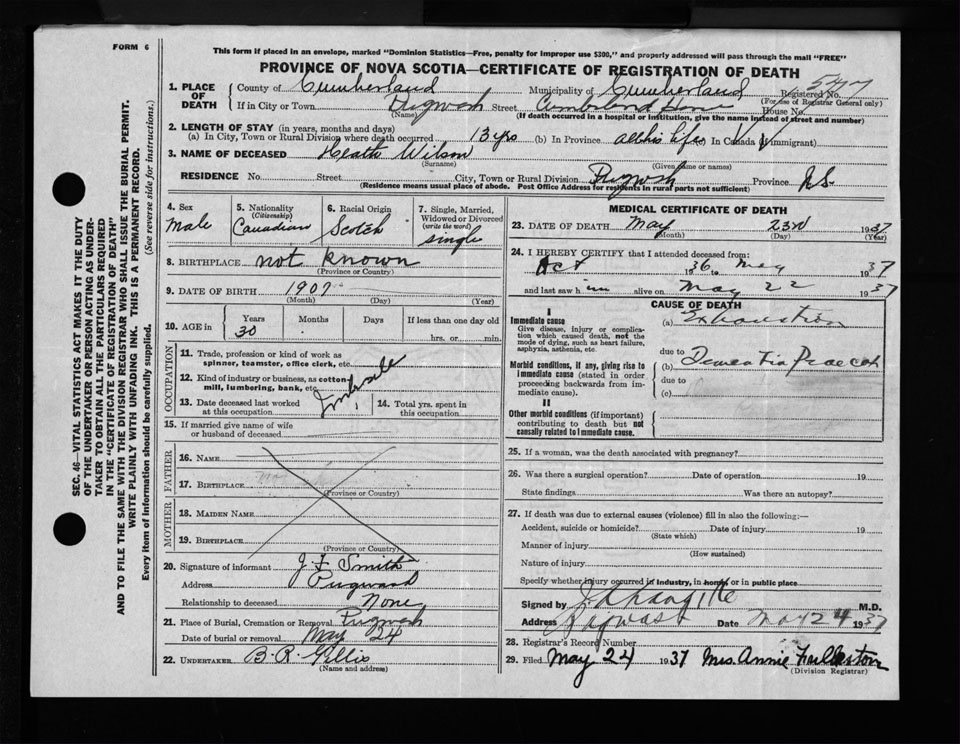 FORM 6
This form if placed in an envelope, marked "Dominion Statistics—Free, penalty for improper use $300," and properly addressed will pass through the mail "FREE"
PROVINCE OF NOVA SCOTIA—CERTIFICATE OF REGISTRATION OF DEATH
SEC. 46—VITAL STATISTICS ACT MAKES IT THE DUTY
OF THE UNDERTAKER OR PERSON ACTING AS UNDER-
TAKER TO OBTAIN ALL THE PARTICULARS REQUIRED
IN THE "CERTIFICATE OF REGISTRATION OF DEATH"
AND TO FILE THE SAME WITH THE DIVISION REGISTRAR WHO SHALL ISSUE THE BURIAL PERMIT.
WRITE PLAINLY WITH UNFADING INK. THIS IS A PERMANENT RECORD.
Every item of information should be carefully supplied. (See reverse side for instructions.)
1. PLACE OF DEATH County of Cumberland Municipality of Cumberland Registered No.
(For use of Registrar General only)
If in City or Town Pugwash Street Cumberland Home House No.
(Name) (If death occurred in a hospital or institution, give the name instead of street and number)
2. LENGTH OF STAY (in years, months and days)
(a) In City, Town or Rural Division where death occurred 13 yrs (b) In Province all his life (c) In Canada (if immigrant)
3. NAME OF DECEASED Heath Wilson
(Surname) (Given name or names)
RESIDENCE No. Street City, Town or Rural Division Pugwash Province N.S.
(Residence means usual place of abode. Post Office Address for residents in rural parts not sufficient)
4. Sex Male
5. Nationality (Citizenship) Canadian
6. Racial Origin Scotch
7. Single, Married, Widowed or Divorced (write the word) single
8. BIRTHPLACE not known
(Province or Country)
9. DATE OF BIRTH 1907
(Month) (Day) (Year)
10. AGE in Years 30 Months Days If less than one day old
hrs. or min.
OCCUPATION
11. Trade, profession or kind of work as spinner, teamster, office clerk, etc.
12. Kind of industry or business, as cotton mill, lumbering, bank, etc.
13. Date deceased last worked at this occupation
14. Total yrs. spent in this occupation
15. If married give name of wife or husband of deceased
FATHER
16. NAME
17. BIRTHPLACE
(Province or Country)
MOTHER
18. MAIDEN NAME
19. BIRTHPLACE
(Province or Country)
20. Signature of informant J. F. Smith
Address Pugwash
Relationship to deceased None
21. Place of Burial, Cremation or Removal Pugwash
Date of burial or removal May 24
22. UNDERTAKER B. R. Gillis
(Name and address)
MEDICAL CERTIFICATE OF DEATH
23. DATE OF DEATH May 23rd 1937
(Month) (Day) (Year)
24. I HEREBY CERTIFY that I attended deceased from:
Oct 1936 to May 1937
and last saw him alive on May 22 1937
CAUSE OF DEATH
I
Immediate cause
Give disease, injury or complication which caused death, not the mode of dying, such as heart failure, asphyxia, asthenia, etc.
(a) Exhaustion
due to
Morbid conditions, if any, giving rise to immediate cause (stated in order proceeding backwards from immediate cause).
(b) Dementia Praecox
due to
(c)
II
Other morbid conditions (if important) contributing to death but not causally related to immediate cause.
25. If a woman, was the death associated with pregnancy?
26. Was there a surgical operation? Date of operation 19
State findings Was there an autopsy?
27. If death was due to external causes (violence) fill in also the following:—
Accident, suicide or homicide? Date of injury 19
(State which)
Manner of injury
(How sustained)
Nature of injury
Specify whether injury occurred in industry, in home, or in public place
Signed by M.D.
Address Pugwash Date May 24 1937
28. Registrar's Record Number
29. Filed May 24 1937 Mrs. Annie
(Division Registrar)